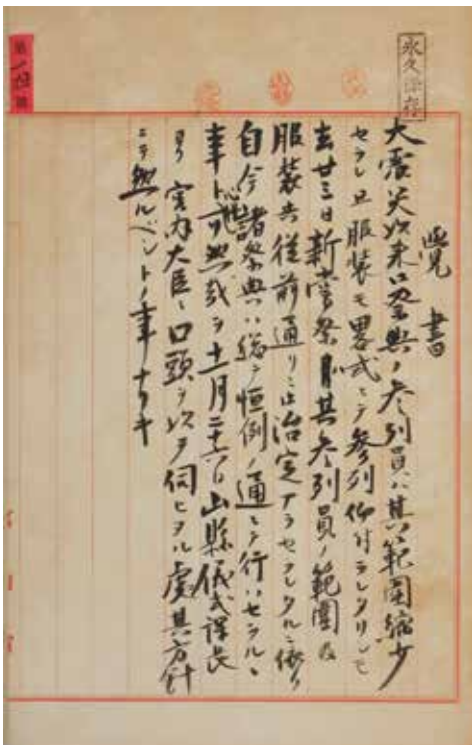 永久保存
覺書
大震災以来祭典ノ参列員ハ其ノ範圍縮少
セラレ且服装モ畧式ニテ参列仰付ラレタリシモ
去廿三日新嘗祭其参列員ノ範圍及
服装共従前通リニ治定アラセラレタルニ依リ
自今諸祭典ハ総テ恒例ノ通ニテ行ハセラルヽ
事ト可然哉ヲ十一月二十六日山縣儀式課長
ヨリ宮内大臣ヘ口頭ヲ以テ伺ヒタル處其方針
ニテ然ルベシトノ事ナリキ